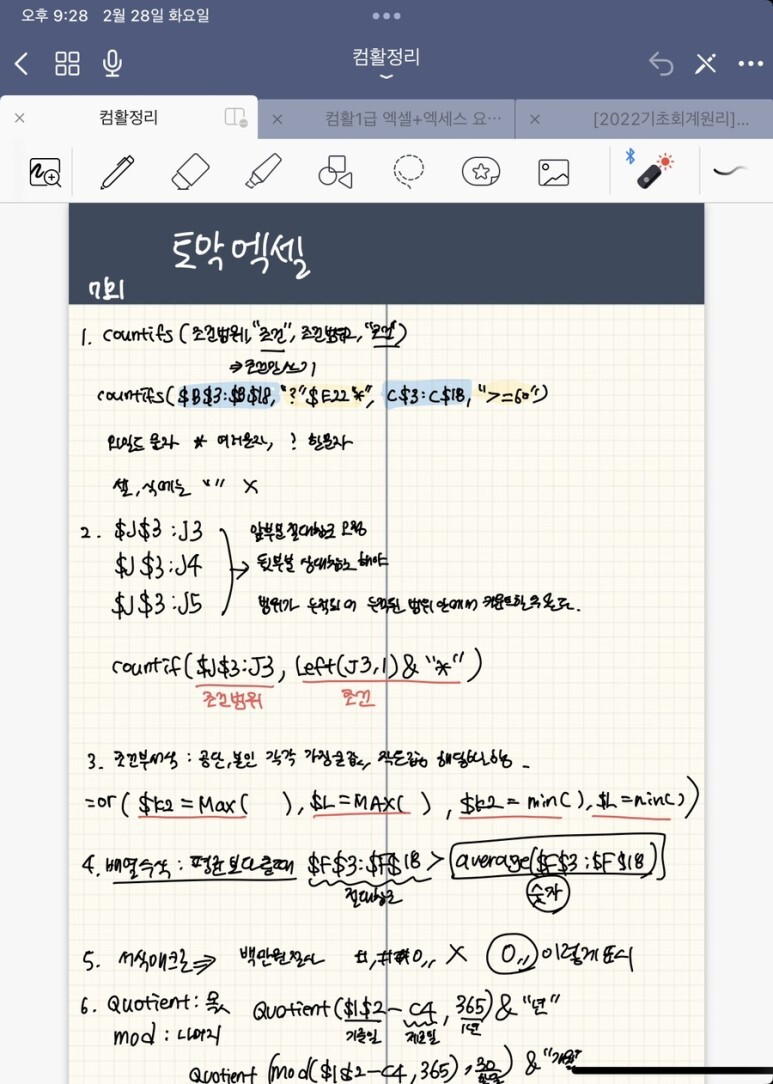 오후 9:28 2월 28일 화요일
컴활정리
컴활정리
컴활1급 엑셀+엑세스 요…
[2022기초회계원리]…
토막 엑셀
7회
1. countifs (조건범위1, "조건", 조건범위2, "조건")
→조건만 쓰기
countifs($B$3:$B$18, "?"$E22"*", C$3:C$18, ">=60")
와일드 문자 * 여러문자, ? 한문자
셀, 식에는 " " X
2. $J$3:J3 앞부분 절대참조
$J$3:J4 뒷부분 상대참조 해야
$J$3:J5 범위가 누적되어 누적된 범위 안에서
countif($J$3:J3, left(J3,1)&"*")
조건범위 조건
3. 조건부서식 : 공단, 본인 각각
=or( $K2=Max( ), $L=MAX( ), $K2=min( ), $L=min( ))
4. 배열수식 : 평균보다 클때 $F$3:$F$18 > average($F$3:$F$18)
절대참조 숫자
5. 서식매크로⇒ 백만원 #,##0,, X 0,, 이렇게 표시
6. Quotient: 몫 Quotient($I$2-C4, 365)&"년"
mod : 나머지 기준일 1년
Quotient(mod($I$2-C4,365),30)&"개월"